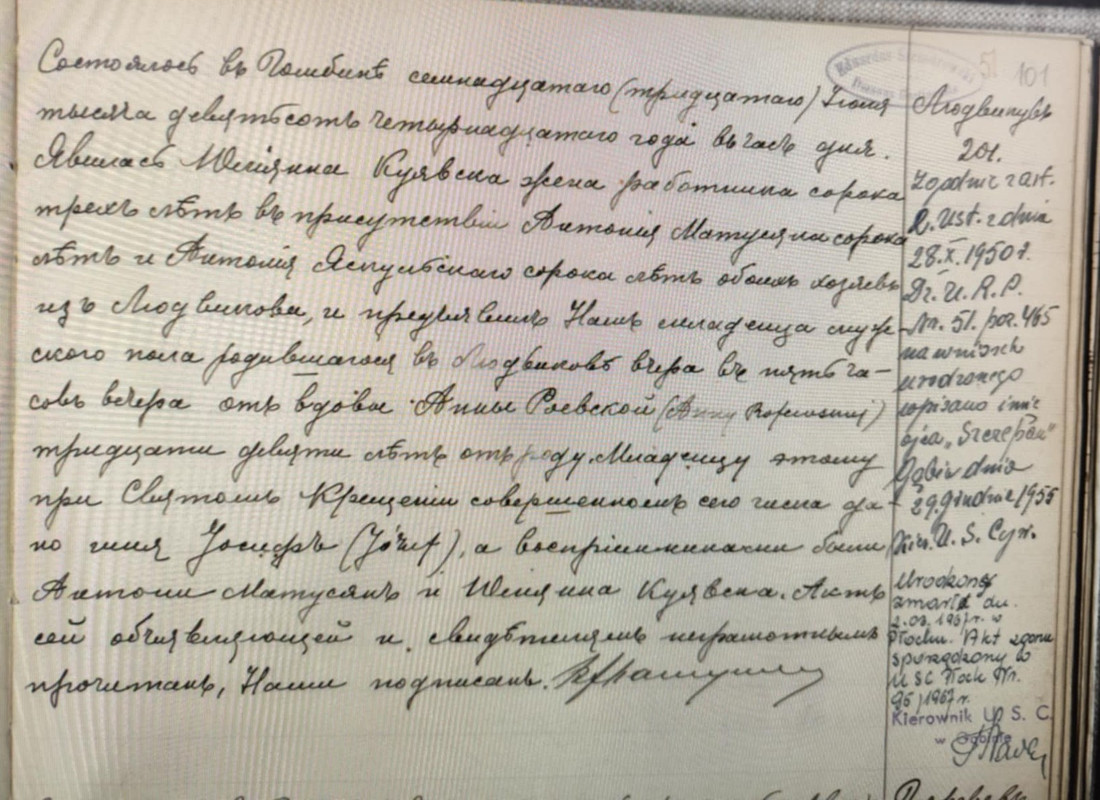 Состоялось въ Гомбинѣ семнадцатаго (тридцатаго) Іюня
тысяча девятьсотъ четырнадцатаго года въ часъ дня.
Явилась Маріянна Куявска жена работника сорока
трехъ лѣтъ въ присутствіи Антонія Матусяка сорока
лѣтъ и Антонія Яспульскаго сорока лѣтъ обоихъ хозяевъ
изъ Людвикова, и предъявилъ Намъ младенца муже-
ского пола родившагося въ Людвиковѣ вчера въ пять ча-
совъ вечера отъ вдовы Анны Раевской (Anny Rajewskiej)
тридцати девяти лѣтъ отъ роду. Младенцу этому
при Святомъ Крещеніи совершенномъ сего числа да-
но имя Іосифъ (Józef), а воспріемниками были
Антони Матусякъ и Маріянна Куявска. Актъ
сей объявляющей и свидѣтелямъ неграмотнымъ
прочитанъ, Нами подписанъ.
51 101
Людвикувъ
201.
Zgodnie z art.
R. Ust. z dnia
28.X.1950 r.
Dz. U. R. P.
Nr. 51. poz. 465
na wniosek
urodzonego
wpisano imię
ojca „Szczepan"
Gąbin dnia
29.grudnia 1955
Kier. U. S. Cyw.
Urodzony
zmarł dn.
2.03.1967 r. w
Płocku. Akt zgonu
sporządzony w
USC Płock Nr.
96/1967 r.
Kierownik U. S. C.
w Gąbinie